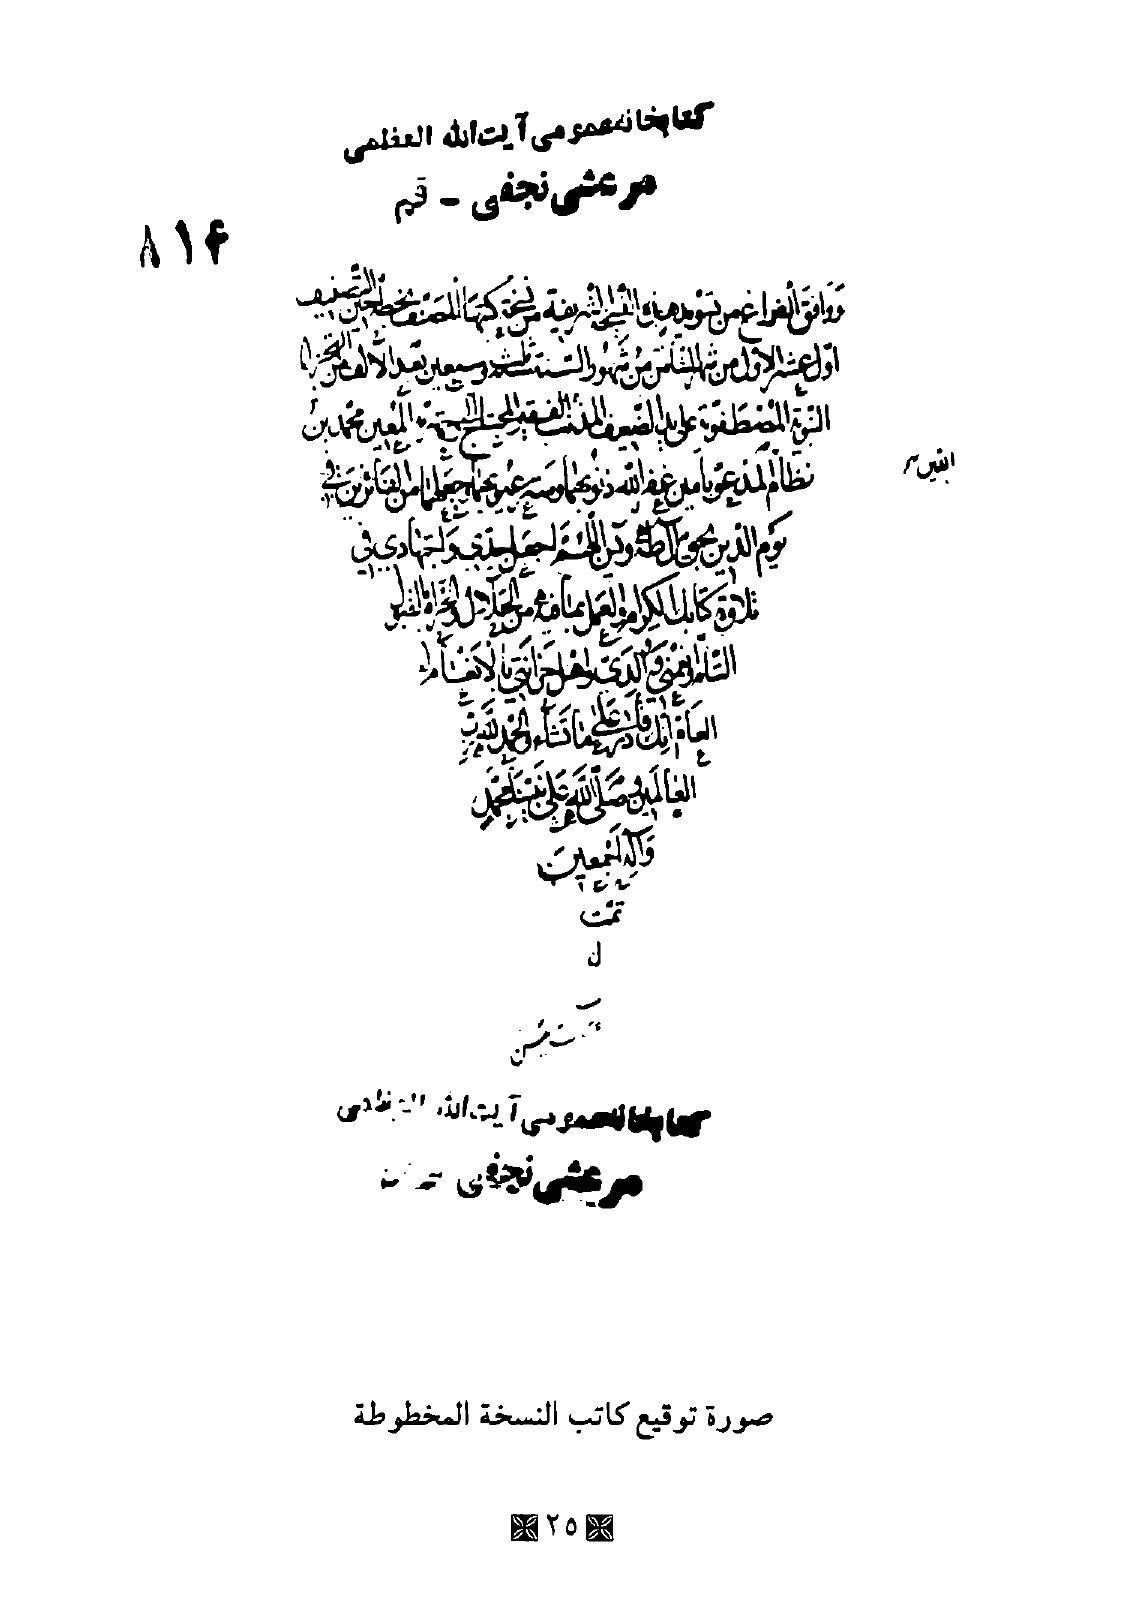 كتابخانه عمومی آیت الله العظمی
مرعشی نجفی - قم
۸۱۶
وَوافق الفراغ من تسويد هذه النسخة الشريفة من نسخة كتبها المصنف بخطه حين التصنيف
اول عشر الاول من شهر الثامن من شهور السنة ثلث وسبعين بعد الالف من الهجرة
النبوية المصطفوية على يد الضعيف المذنب الفقير المحتاج المعين محمد بن
نظام المدعو بامين غفر الله ذنوبهما وستر عيوبهما وجعلهما من الفائزين في
يوم الدين بحق اجعل جدي واجتهادي في
تلاوة كتابك الكريم والعمل بما فيه من الحلال
التامة وَالدي واهل حزانتي بالانعام
العامة انك على ما تشاء والحمد لله رب
العالمين وصلى الله على نبينا محمد
وآله اجمعين
تمت
كتابخانه عمومی آیت الله العظمی
مرعشی نجفی
صورة توقيع كاتب النسخة المخطوطة
٢٥